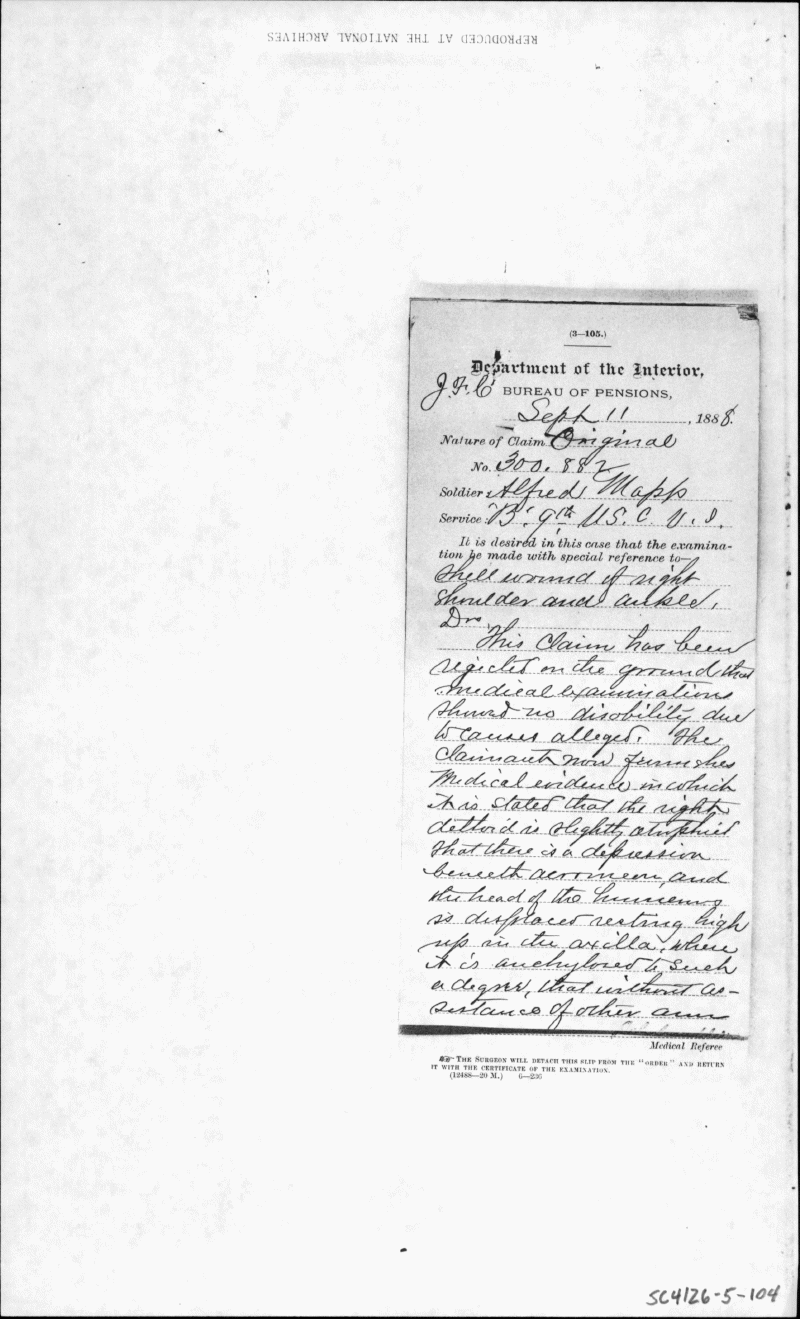 REPRODUCED AT THE NATIONAL ARCHIVES
(3—105.)
Department of the Interior,
J.F.C. BUREAU OF PENSIONS,
Sept 11, 1888.
Nature of Claim Original
No. 300.882
Soldier: Alfred Mapp
Service: "B" 9th U.S.C.V.I.
It is desired in this case that the examina-
tion be made with special reference to—
Shell wound of right
shoulder and ankle.
Drs.
This claim has been
rejected on the ground that
medical examinations
showed no disability due
to causes alleged. The
claimant now furnishes
medical evidence in which
it is stated that the right
deltoid is slightly atrophied
that there is a depression
beneath acromion, and
the head of the humerus
is displaced resting high
up in the axilla, where
it is anchylosed to such
a degree, that without as-
sistance of other arm
Medical Referee
THE SURGEON WILL DETACH THIS SLIP FROM THE "ORDER" AND RETURN
IT WITH THE CERTIFICATE OF THE EXAMINATION.
(12488—20 M.) 6—236
SC4126-5-104